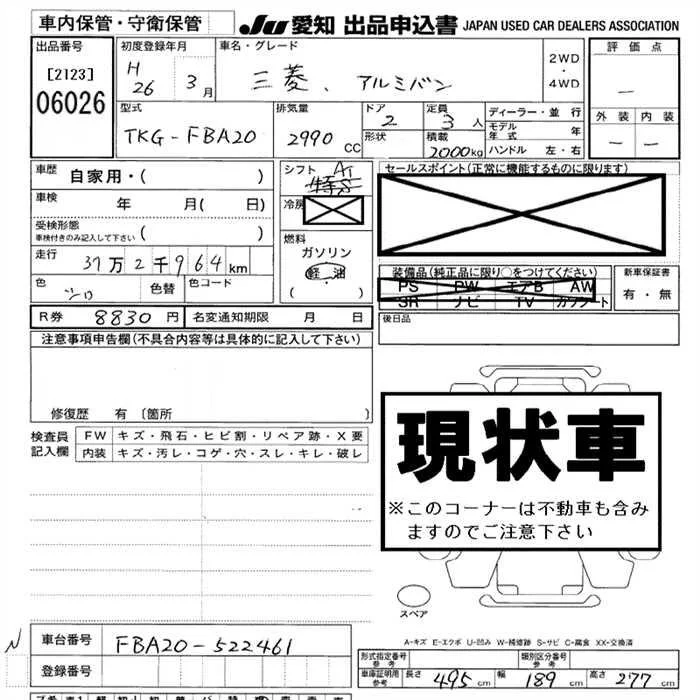 車内保管・守衛保管
JU 愛知 出品申込書 JAPAN USED CAR DEALERS ASSOCIATION
出品番号
[2123]
06026
初度登録年月
H 26 3 月
車名・グレード
三菱、アルミバン
2WD
・
4WD
評価点
ー
外装 内装
ー ー
型式
TKG-FBA20
排気量
2990 CC
ドア
2
形状
定員
3 人
積載
2000kg
ディーラー・並行
モデル年式 年
ハンドル 左・右
車歴
自家用・( )
車検 年 月( 日)
受検形態
車検付きのみ記入して下さい ( )
走行
37万2千964km
色
シロ
色替
色コード
シフト
AT
冷房
燃料
ガソリン
軽・油
( )
セールスポイント(正常に機能するものに限ります)
装備品(純正品に限り○をつけてください)
PS PW エアB AW
SR ナビ TV カワシート
新車保証書
有・無
R券 8830 円
名変通知期限 月 日
後日品
注意事項申告欄(不具合内容等は具体的に記入して下さい)
修復歴 有〔箇所 〕
検査員記入欄
FW キズ・飛石・ヒビ割・リペア跡・X要
内装 キズ・汚レ・コゲ・穴・スレ・キレ・破レ
現状車
※このコーナーは不動車も含み
ますのでご注意下さい
スペア
A-キズ E-エクボ U-凹み W-補修跡 S-サビ C-腐食 XX-交換済
N
車台番号 FBA20-522461
登録番号
形式指定番号 参考
類別区分番号 参考
車庫証明用 参考
長さ 495 cm 幅 189 cm 高さ 277 cm